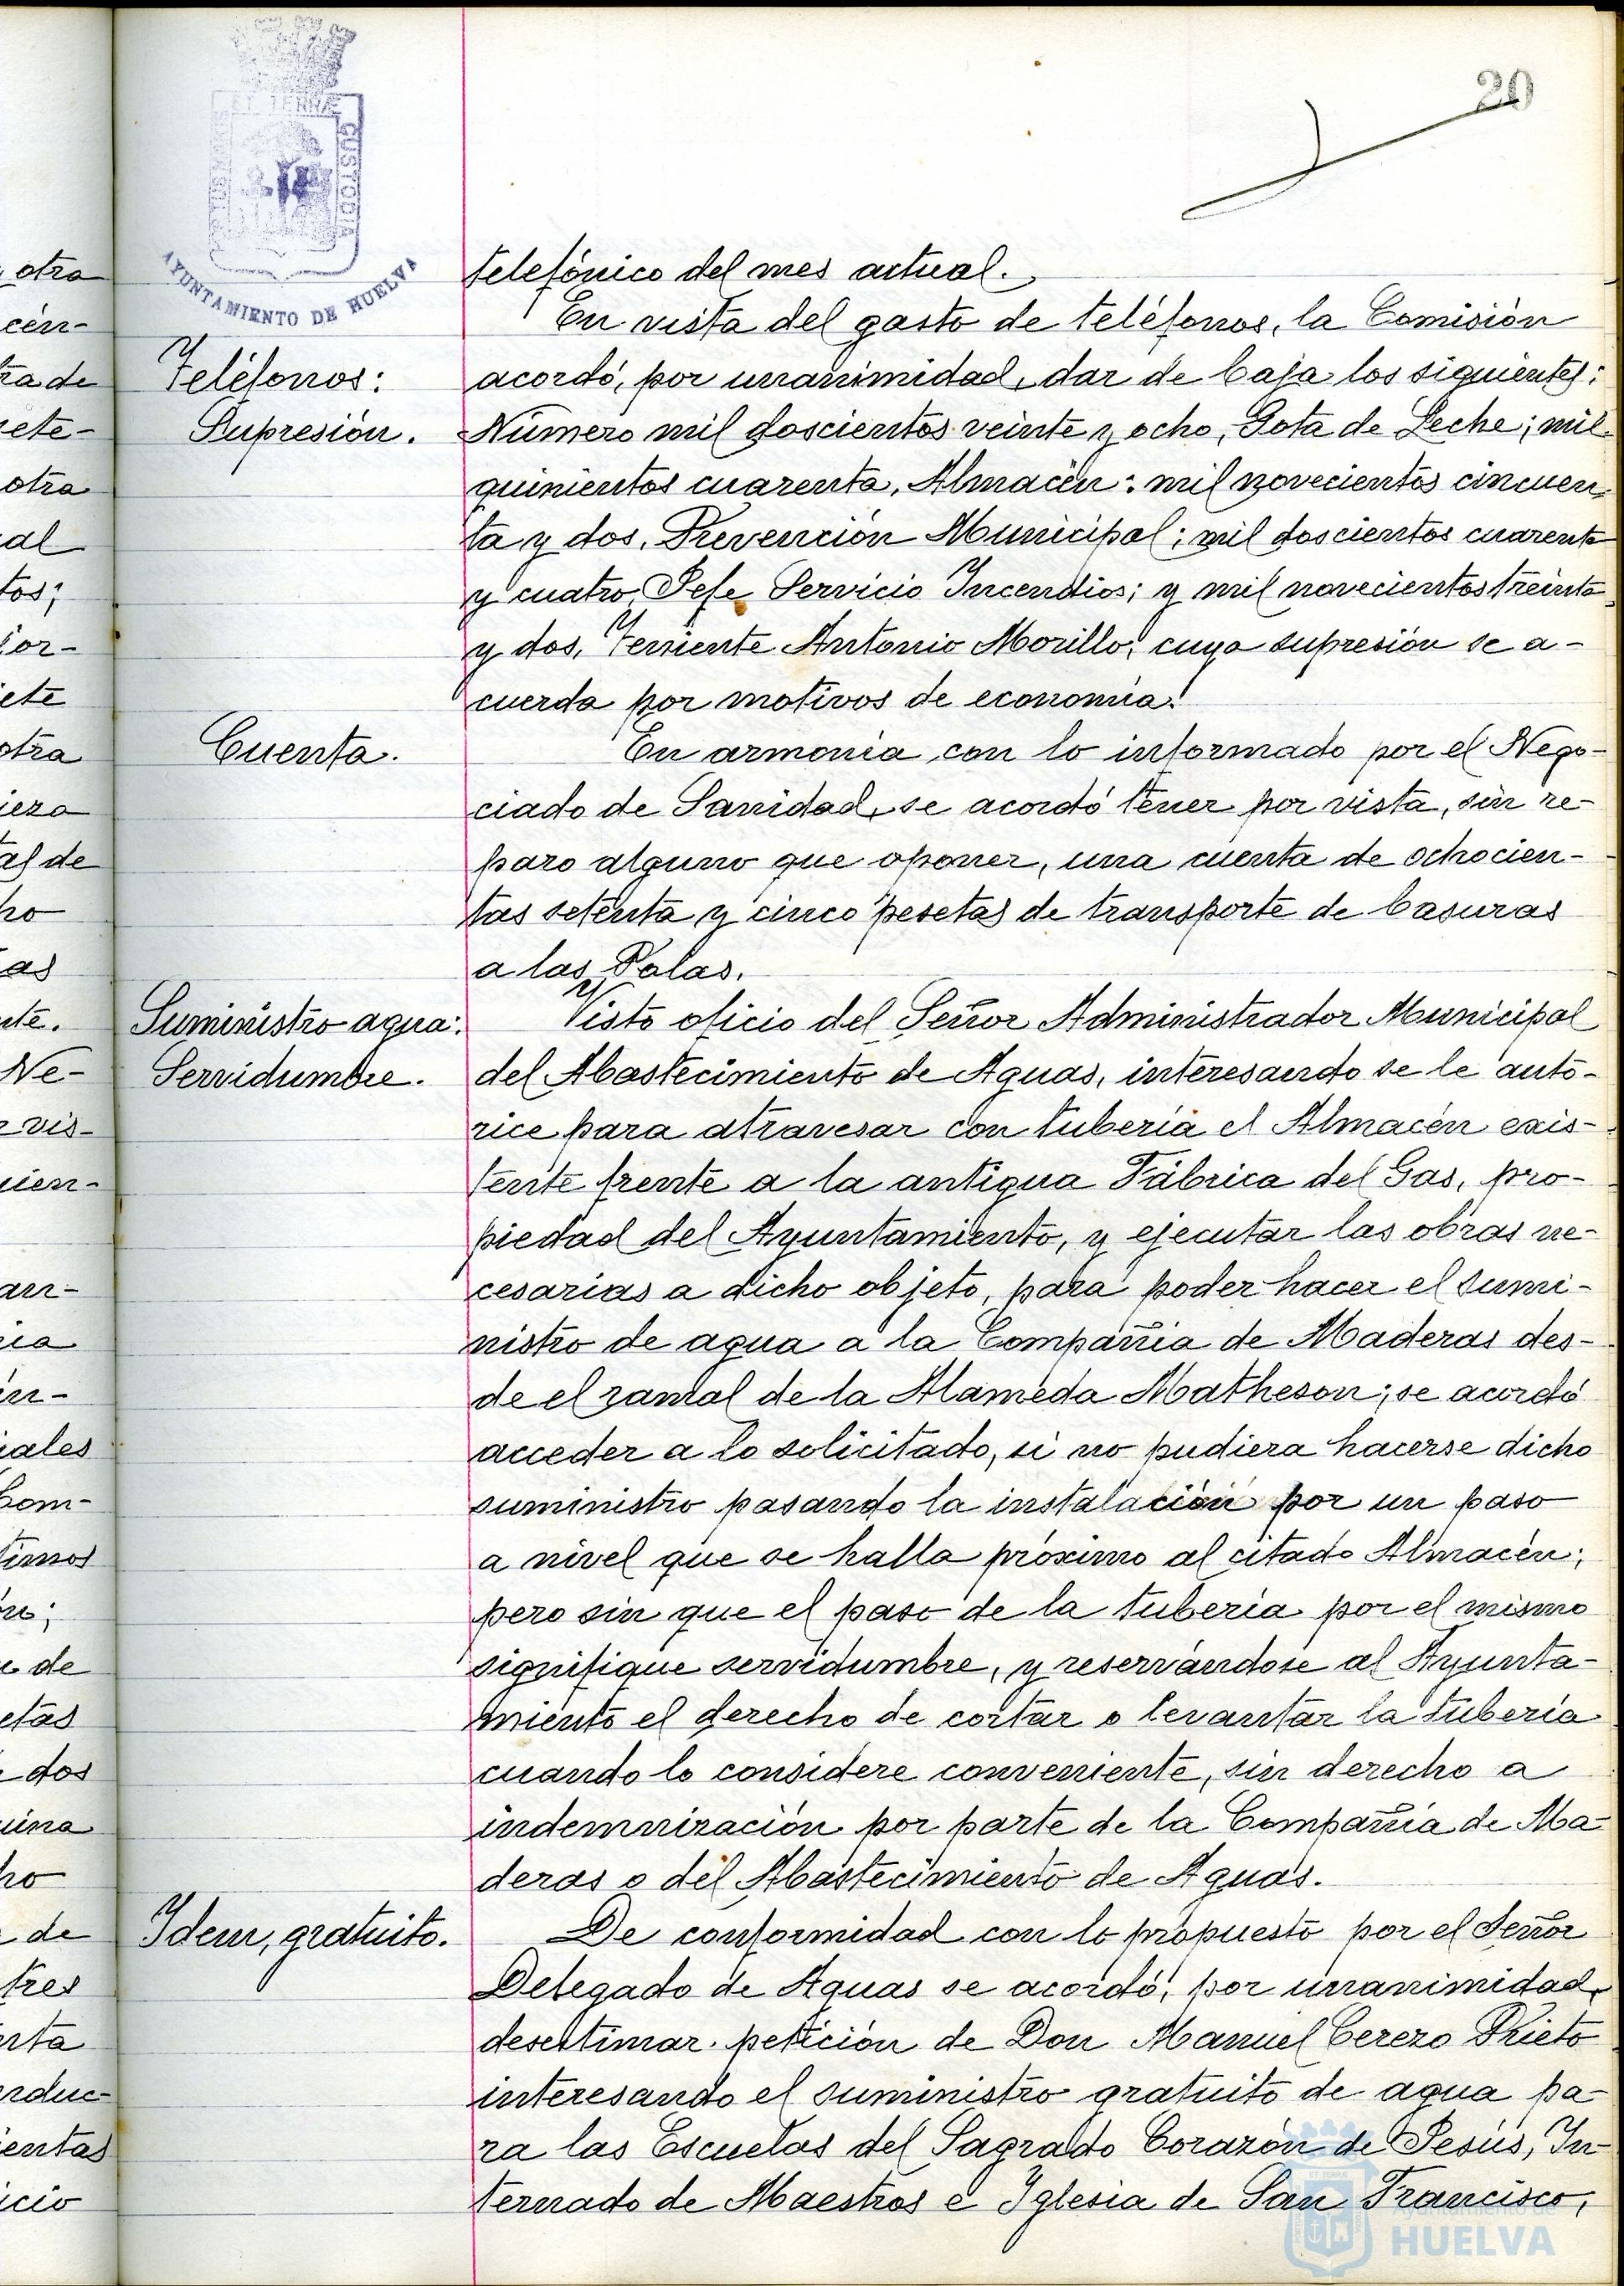 20
PORTUS MARIS ET TERRÆ CUSTODIA
AYUNTAMIENTO DE HUELVA
telefónico del mes actual.
Teléfonos:
Supresión.
En vista del gasto de teléfonos, la Comisión
acordó, por unanimidad, dar de baja los siguientes:
Número mil doscientos veinte y ocho, Gota de Leche; mil
quinientos cuarenta, Almacén; mil novecientos cincuen-
ta y dos, Prevención Municipal; mil doscientos cuarenta
y cuatro, Jefe Servicio Incendios; y mil novecientos treinta
y dos, Teniente Antonio Morillo; cuya supresión se a-
cuerda por motivos de economía.
Cuenta.
En armonía con lo informado por el Nego-
ciado de Sanidad, se acordó tener por vista, sin re-
paro alguno que oponer, una cuenta de ochocien-
tas setenta y cinco pesetas de transporte de basuras
a las Palas.
Suministro agua:
Servidumbre.
Visto oficio del Señor Administrador Municipal
del Abastecimiento de Aguas, interesando se le auto-
rice para atravesar con tubería el Almacén exis-
tente frente a la antigua Fábrica del Gas, pro-
piedad del Ayuntamiento, y ejecutar las obras ne-
cesarias a dicho objeto, para poder hacer el sumi-
nistro de agua a la Compañía de Maderas des-
de el ramal de la Alameda Matheson; se acordó
acceder a lo solicitado, si no pudiera hacerse dicho
suministro pasando la instalación por un paso
a nivel que se halla próximo al citado Almacén;
pero sin que el paso de la tubería por el mismo
signifique servidumbre, y reservándose al Ayunta-
miento el derecho de cortar o levantar la tubería
cuando lo considere conveniente, sin derecho a
indemnización por parte de la Compañía de Ma-
deras o del Abastecimiento de Aguas.
Idem, gratuito.
De conformidad con lo propuesto por el Señor
Delegado de Aguas se acordó, por unanimidad,
desestimar petición de Don Manuel Cerezo Prieto
interesando el suministro gratuito de agua pa-
ra las Escuelas del Sagrado Corazón de Jesús, In-
ternado de Maestros e Iglesia de San Francisco,
Ayuntamiento de
HUELVA